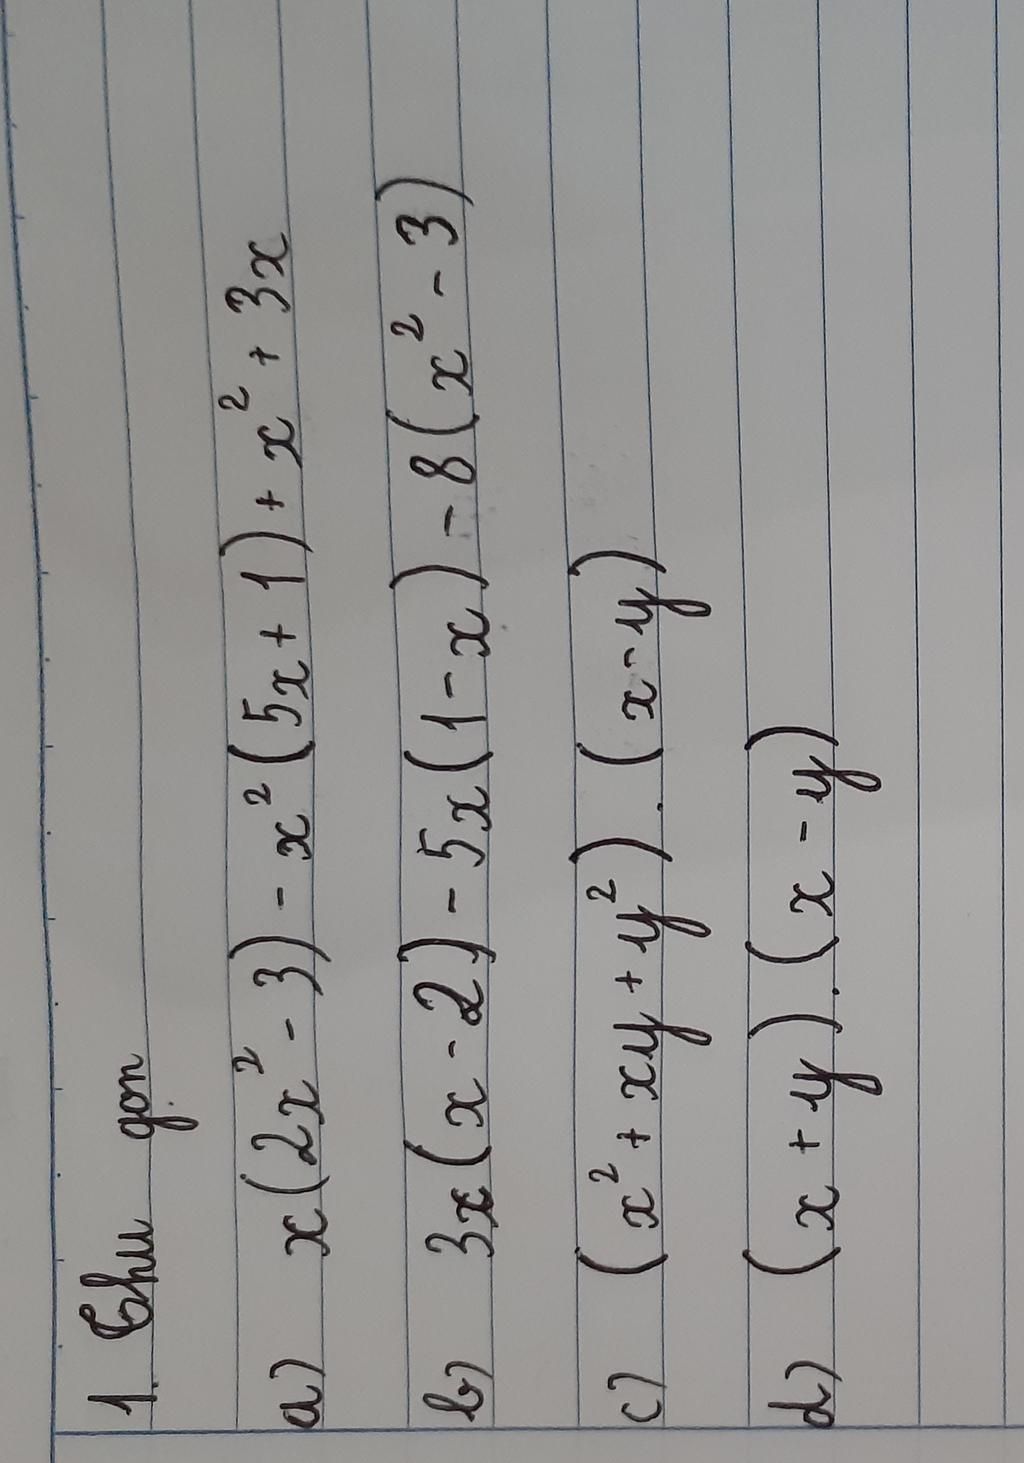 1. Thu gọn
a) x(2x² - 3) - x²(5x + 1) + x² + 3x
b) 3x(x - 2) - 5x(1 - x) - 8(x² - 3)
c) (x² + xy + y²) . (x - y)
d) (x + y) . (x - y)